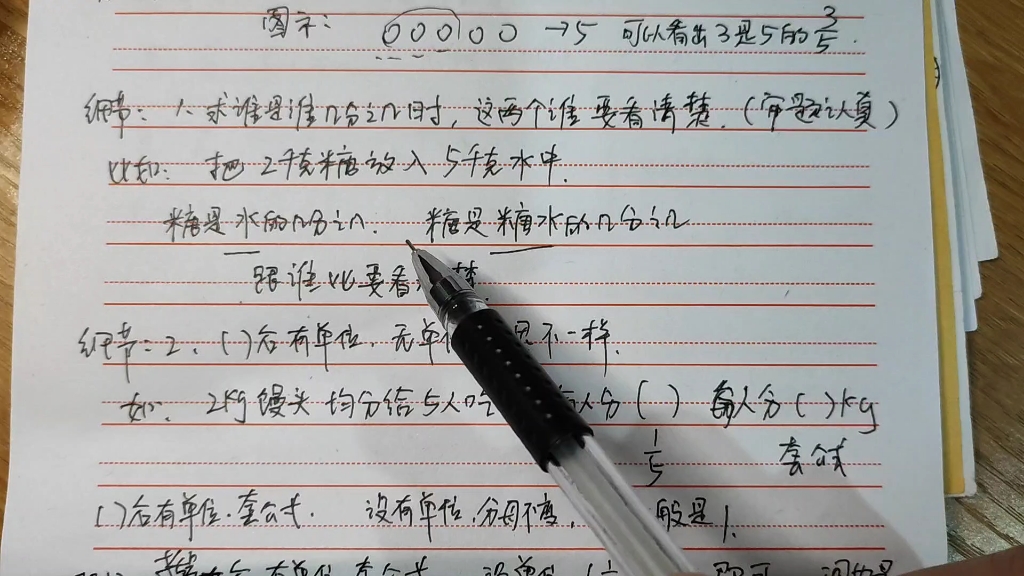 图示： 00000 →5 可以看出3是5的3/5.
细节：1、求谁是谁几分之几时，这两个谁要看清楚.（审题认真）
比如： 把2千克糖放入5千克水中.
糖是水的几分之几. 糖是糖水的几分之几
跟谁比要看 楚.
细节：2、( )后有单位，无单 不一样.
如： 2kg馒头均分给5人吃 人分( ) 每人分( )kg
1/5 套公式
( )后有单位.套公式. 没有单位，分母不变， 般是1.
后有单位 套公式